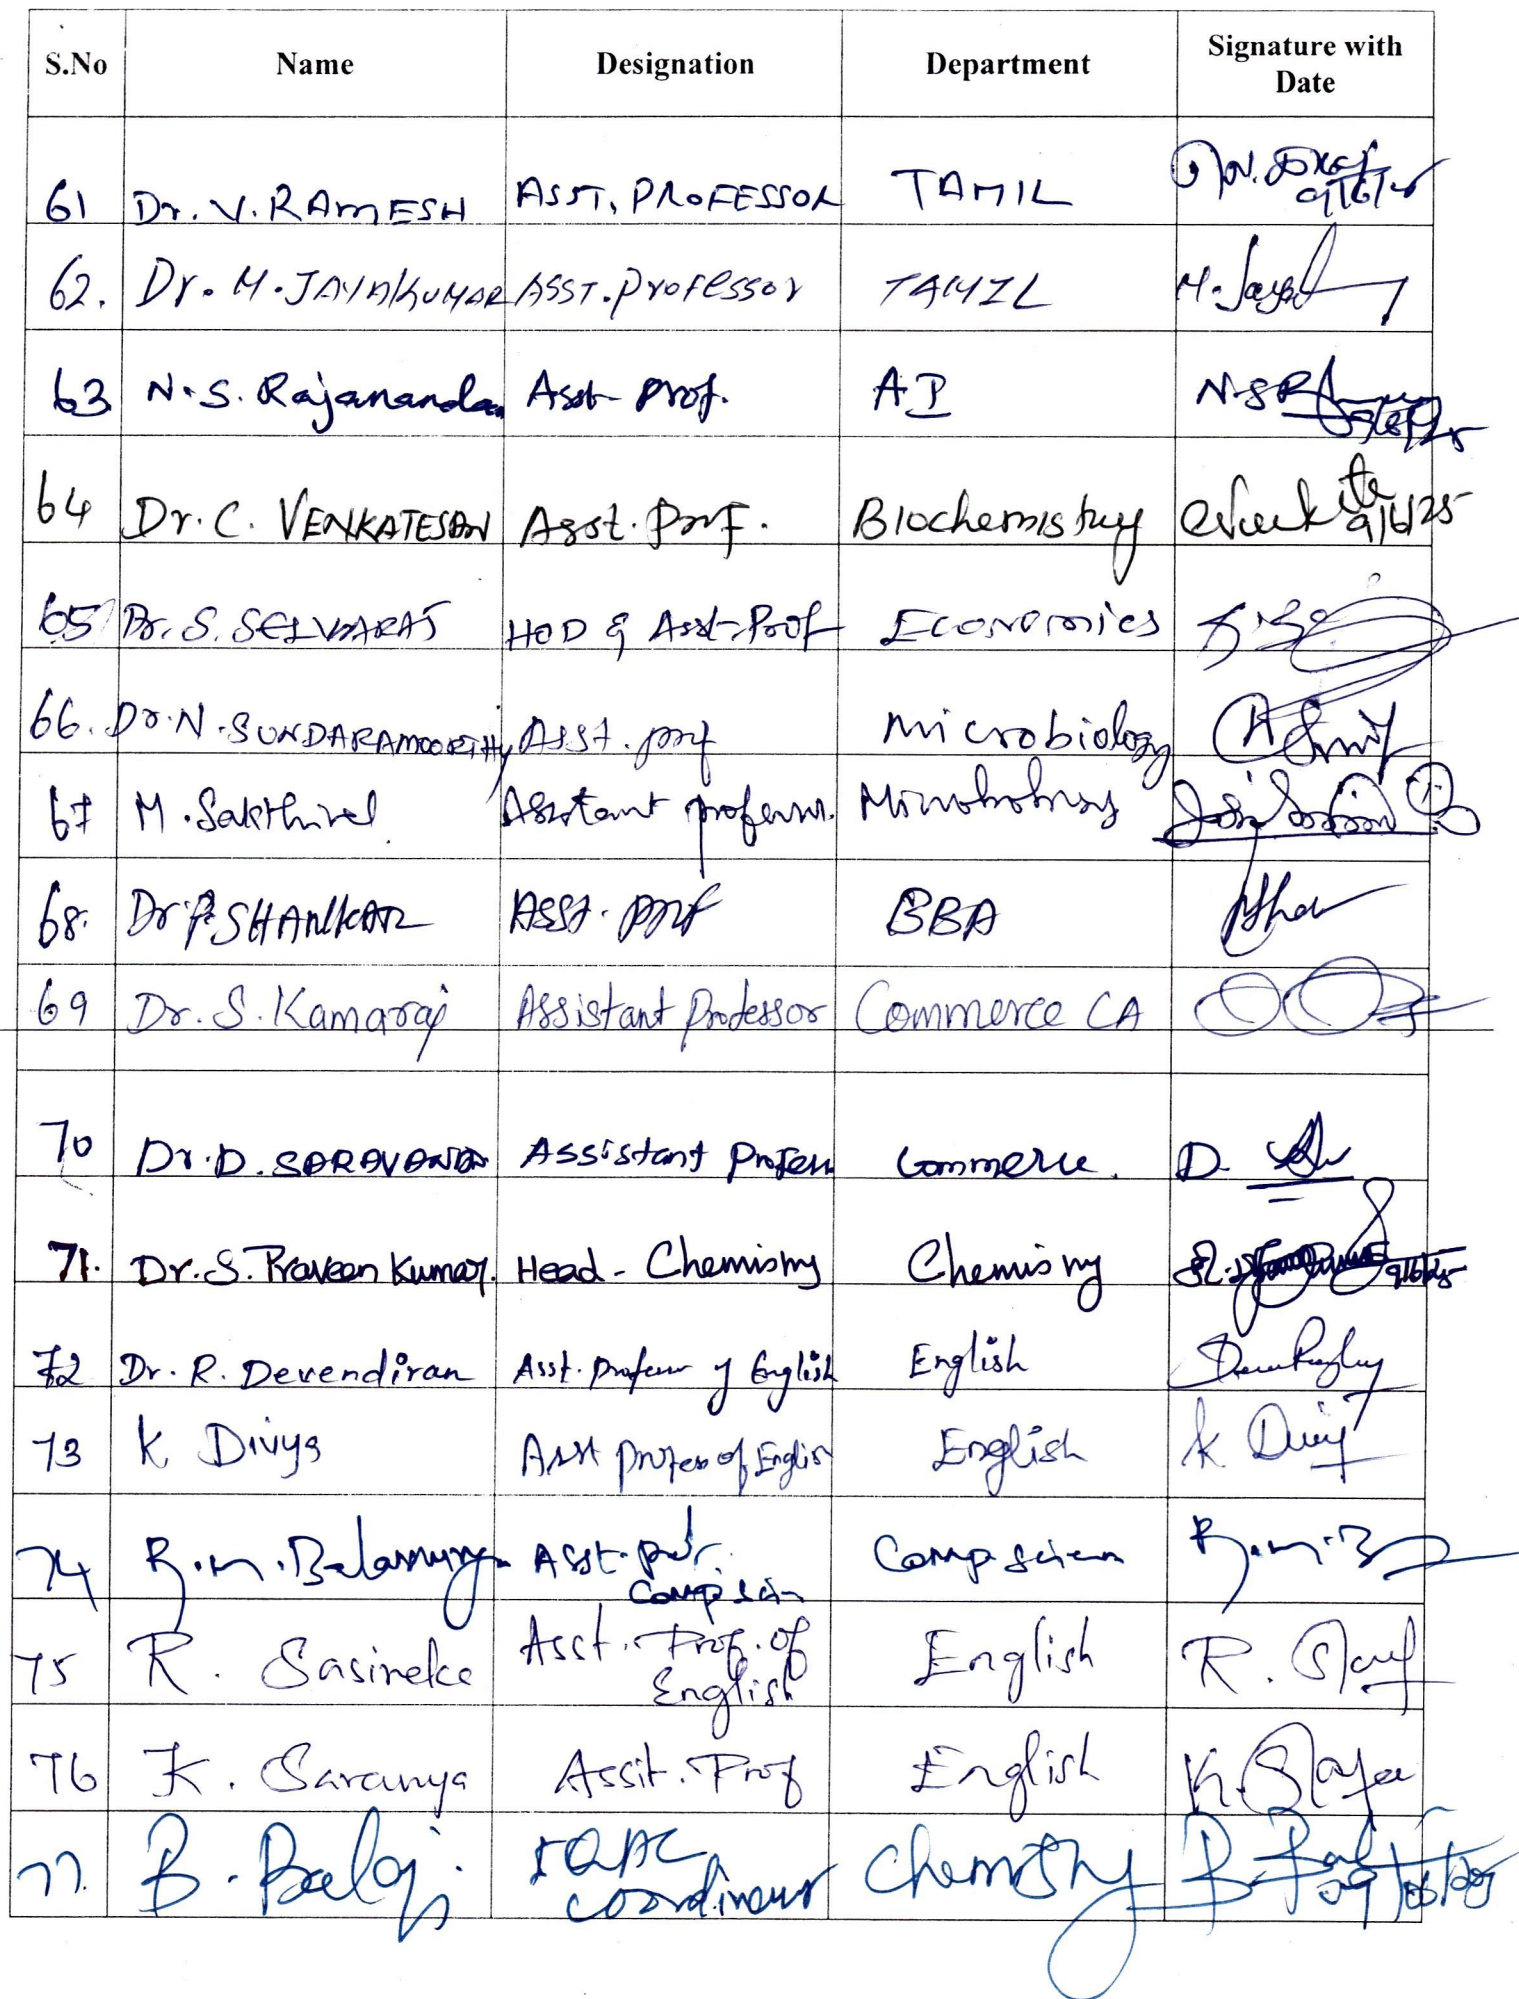 S.No Name Designation Department Signature with Date
61 Dr. V. RAMESH ASST. PROFESSOR TAMIL 9/6/25
62. Dr. M. JAYAKUMAR ASST. Professor TAMIL M. Jaya
63 N. S. Rajanandan Asst Prof. AI N.S.R
64 Dr. C. VENKATESAN Asst. Prof. Biochemistry 9/6/25
65 Dr. S. SELVARAJ HOD & Asst. Prof Economics
66. Dr. N. SUNDARAMOORTHY Asst. prof Microbiology
67 M. Sakthivel Assistant professor. Microbiology
68. Dr. P. SHANKAR Asst. Prof BBA
69 Dr. S. Kamaraj Assistant Professor Commerce CA
70 Dr. D. SARAVANAN Assistant Profess Commerce. D.
71. Dr. S. Praveen Kumar. Head - Chemistry Chemistry 9/6/25
72 Dr. R. Devendiran Asst. Professor of English English
73 K Divya Asst Profess of English English K Divy
74 R. M. Balamurugan Asst. prof. Comp Scien Comp Scien
75 R. Sasireka Asst. Prof. of English English R.
76 K. Saranya Assit. Prof English K.
77. B. Balaji. IQAC Coordinator Chemistry B. Bal 09/06/25